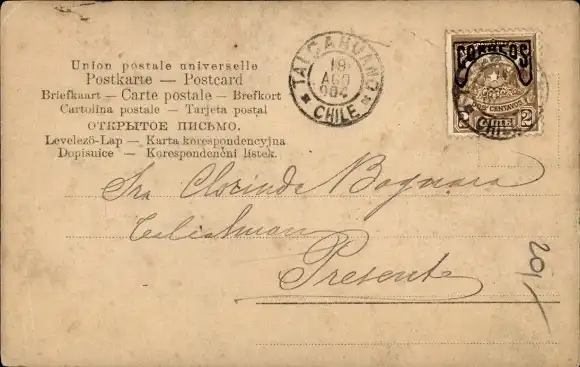 Union postale universelle
Postkarte — Postcard
Briefkaart — Carte postale — Brefkort
Cartolina postale — Tarjeta postal
ОТКРЫТОЕ ПИСЬМО.
Levelezö-Lap — Karta korespondencyjna
Dopisnice — Korespondenčni listek.
TALCAHUANO
18
AGO
904
CHILE
CORREOS
DOS CENTAVOS
2 CHILE 2
Sra Clorinda Bagnara
Talcahuano
Presente
20,-